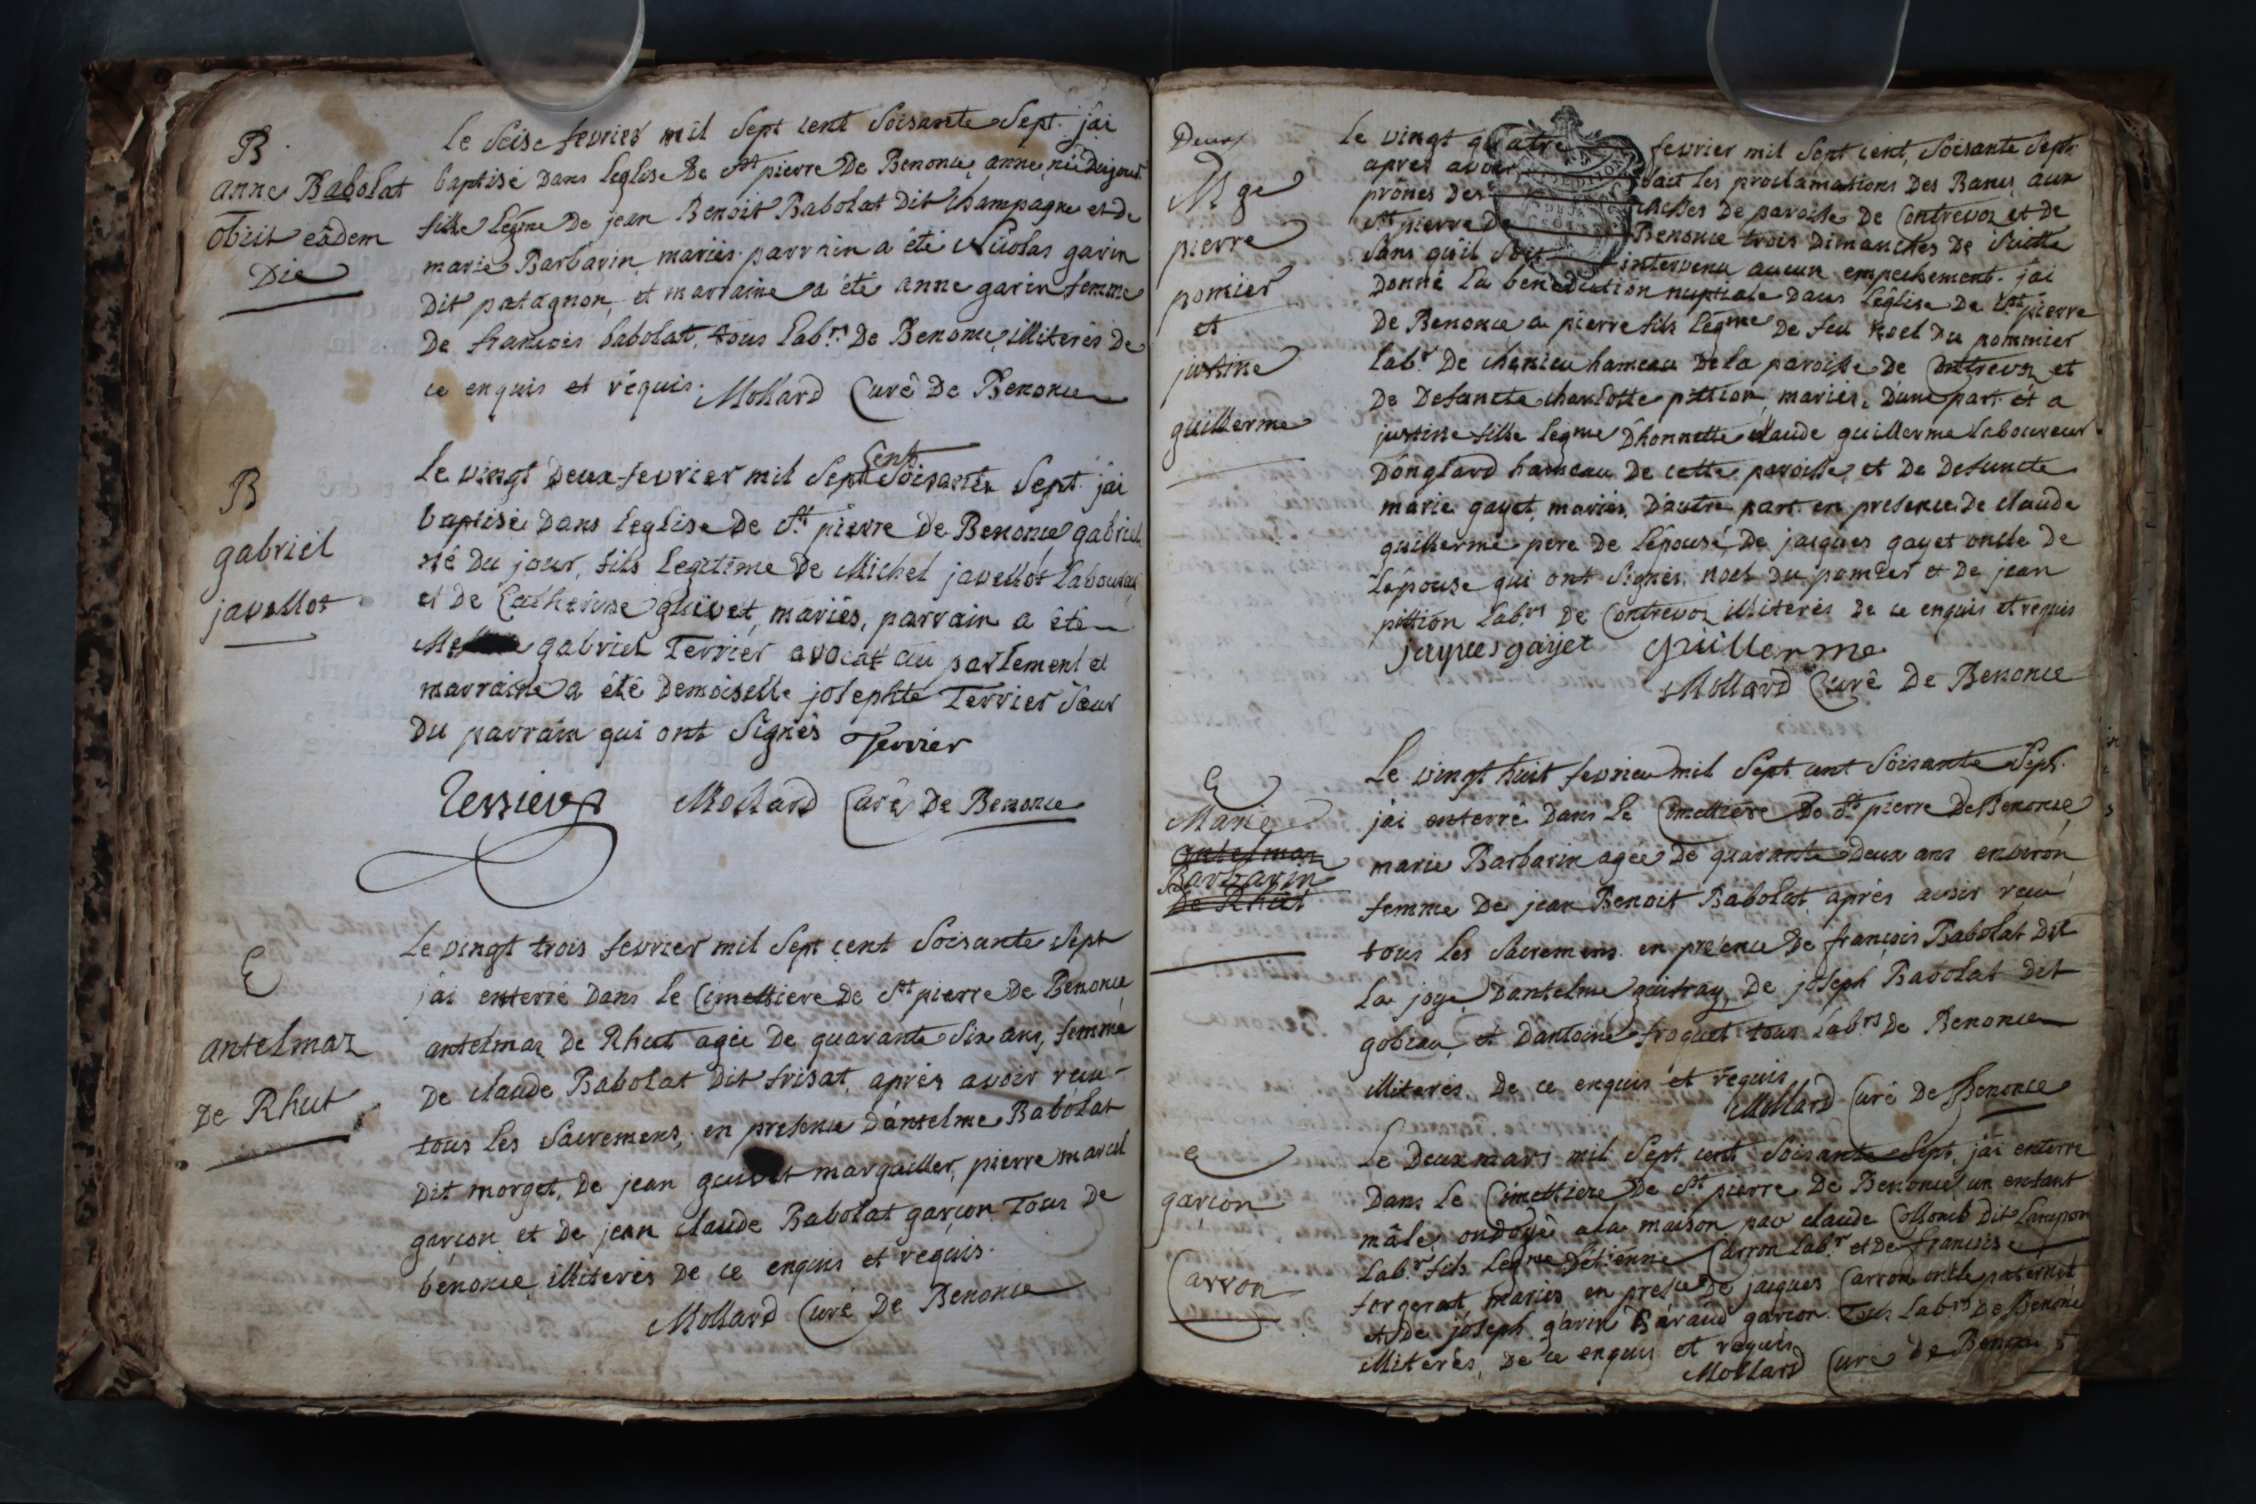 B
anne Babolat
obiit eâdem
Die
Le Seise fevrier mil Sept cent Soisante Sept. jai
baptisé Dans Leglise De St pierre De Benonce, anne, née Dujourd
fille Legme De jean Benoit Babolat Dit Champagne et de
marie Barbarin mariés. parrain a été Nicolas garin
Dit patagnon, et marraine a été anne garin femme
De francois babolat, tous Labrs De Benonce, illiterés de
ce enquis et réquis. Mollard Curé De Benonce
B
gabriel
javellot
Cent
Le vingt Deux fevrier mil Sept Soisante Sept. jai
baptisé Dans leglise De St pierre De Benonce gabriel
né Du jour, fils Legitime De Michel javellot Laboureur
et De Catherine guivet, mariés, parrain a été
gabriel Terrier avocat au parlement et
marraine a été Demoiselle josephte Terrier Sœur
Du parrain qui ont Signés Terrier
Terrier Mollard Curé De Benonce
E
antelmaz
De Rhut
Le vingt trois fevrier mil Sept cent Soisante Sept
jai enterré Dans le Cimettiere De St pierre De Benonce
antelmaz De Rhut agée De quarante Six ans, femme
De claude Babolat Dit frisat, aprés avoir recu
tous les Sacremens, en presence Dantelme Babolat
Dit morget, De jean marguiller, pierre marcel
garçon et De jean claude Babolat garçon Tous De
bénonce illiterés De ce enquis et requis.
Mollard Curé De Benonce
Deux
Mge
pierre
pomier
et
justine
guillerme
Le vingt quatre fevrier mil Sept cent, Soisante Sept
aprés avoir fait les proclamations Des Bancs aux
prônes Des Messes De paroisse De Contrevoz et De
St pierre De Benonce trois Dimanches De Suitte
Sans quil Soit intervenu aucun empechement. jai
Donné La benediction nuptiale Dans Léglise De St pierre
De Benonce a pierre fils Legme De feu Noel Du pommier
Labr. De chenieu hameau De la paroisse De Contrevoz et
De Defuncte charlotte pittion, mariés, Dune part. et a
justine fille Legme Dhonnette claude guillerme Laboureur
Donglard hameau De cette paroisse, et De Defuncte
marie gayet, mariés, Dautre part en presence De claude
guillerme pere De Lépouse, De jacques gayet oncle De
Lépouse qui ont Signés, Noel Du pomier et De jean
pittion Labrs De Contrevoz illiterés De ce enquis et requis
jayques gayet Guillerme
Mollard Curé De Benonce
E
Marie
antelmaz
Barbarin
De Rhut
Le vingt huit fevrier mil Sept cent Soisante Sept.
jai enterré Dans Le Cimettiere De St pierre De Benonce
marie Barbarin agée De quarante Deux ans environ
femme De jean Benoit Babolat aprés avoir recu
tous Les Sacremens. en presence De françois Babolat Dit
La joye, Dantelme De joseph Babolat Dit
gobeau, et Dantoine froquet tous Labrs De Benonce
illiterés. De ce enquis et réquis
Mollard Curé De Benonce
E
garçon
Carron
Le Deux mars mil Sept cent Soisante Sept. jai enterré
Dans le Cimettiere De St pierre De Benonce un enfant
mâle, ondoyé a la maison par claude Collomb Dit Lampon
Labr. fils Legme Détienne Carron Labr. et De françoise
forgerat, mariés, en presce De jacques Carron oncle paternel
et De joseph garin Baraud garcon. Tous Labrs De Benonce
illiterés, De ce enquis et requis
Mollard Curé De Benonce